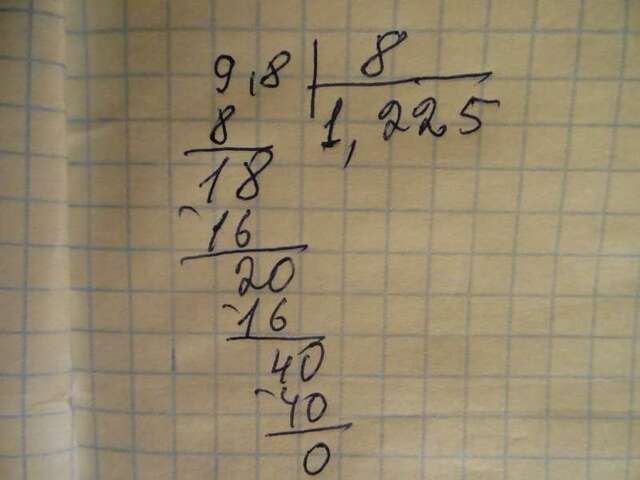 9,8 8
8 1,225
18
- 16
20
- 16
40
- 40
0